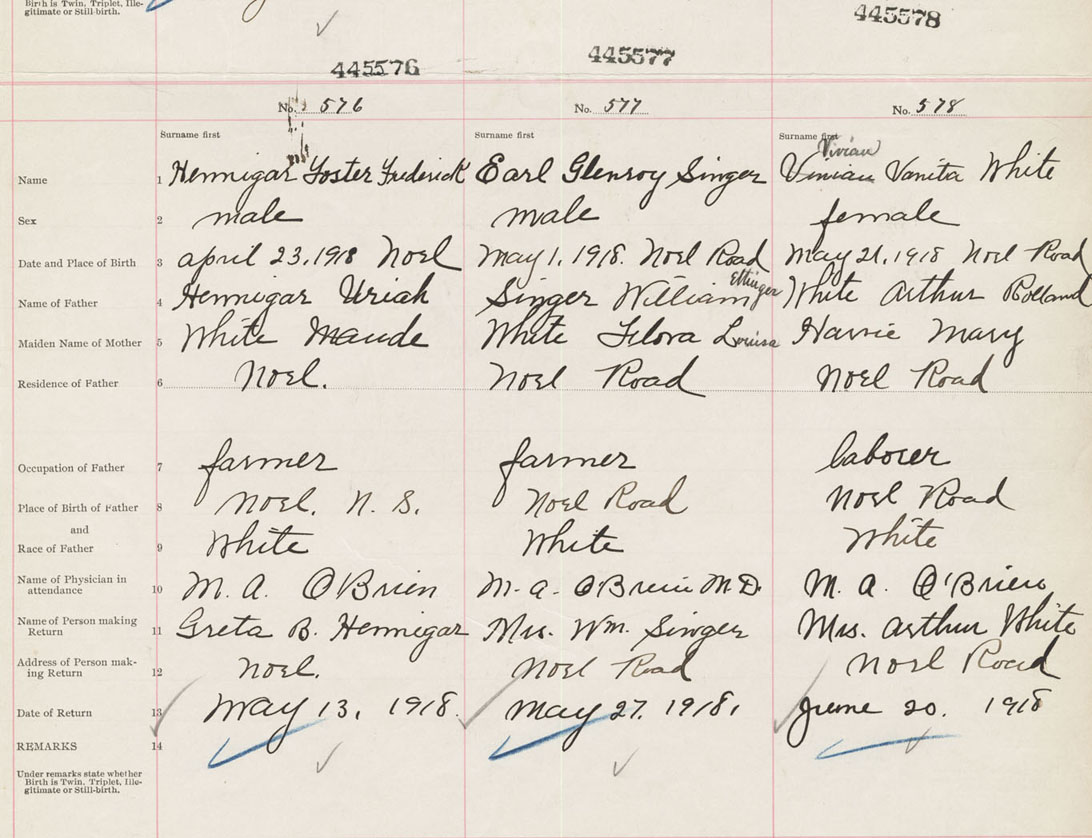 Birth is Twin, Triplet, Ille-
gitimate or Still-birth.
445576
445577
445578
No. 576
No. 577
No. 578
Surname first
Surname first
Surname first
Vivian
Name 1 Hennigar Foster Frederick Earl Glenroy Singer Vivian Vanita White
Sex 2 male male female
Date and Place of Birth 3 april 23, 1918 Noel May 1, 1918. Noel Road May 21, 1918 Noel Road
Ettinger
Name of Father 4 Hennigar Uriah Singer William White Arthur Rolland
Maiden Name of Mother 5 White Maude White Flora Louisa Harvie Mary
Residence of Father 6 Noel. Noel Road Noel Road
Occupation of Father 7 farmer farmer laborer
Place of Birth of Father 8 Noel. N. S. Noel Road Noel Road
and
Race of Father 9 White White White
Name of Physician in
attendance 10 M. A. O'Brien M. a. O'Brien M.D. M. A. O'Brien
Name of Person making
Return 11 Greta B. Hennigar Mrs. Wm. Singer Mrs. Arthur White
Address of Person mak-
ing Return 12 Noel. Noel Road Noel Road
Date of Return 13 May 13, 1918. May 27. 1918, June 20. 1918
REMARKS 14
Under remarks state whether
Birth is Twin, Triplet, Ille-
gitimate or Still-birth.